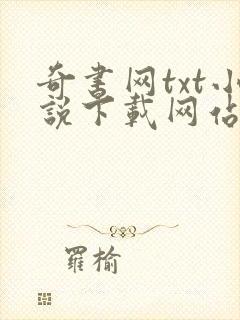 奇书网txt小
說下載网佔
羅榆